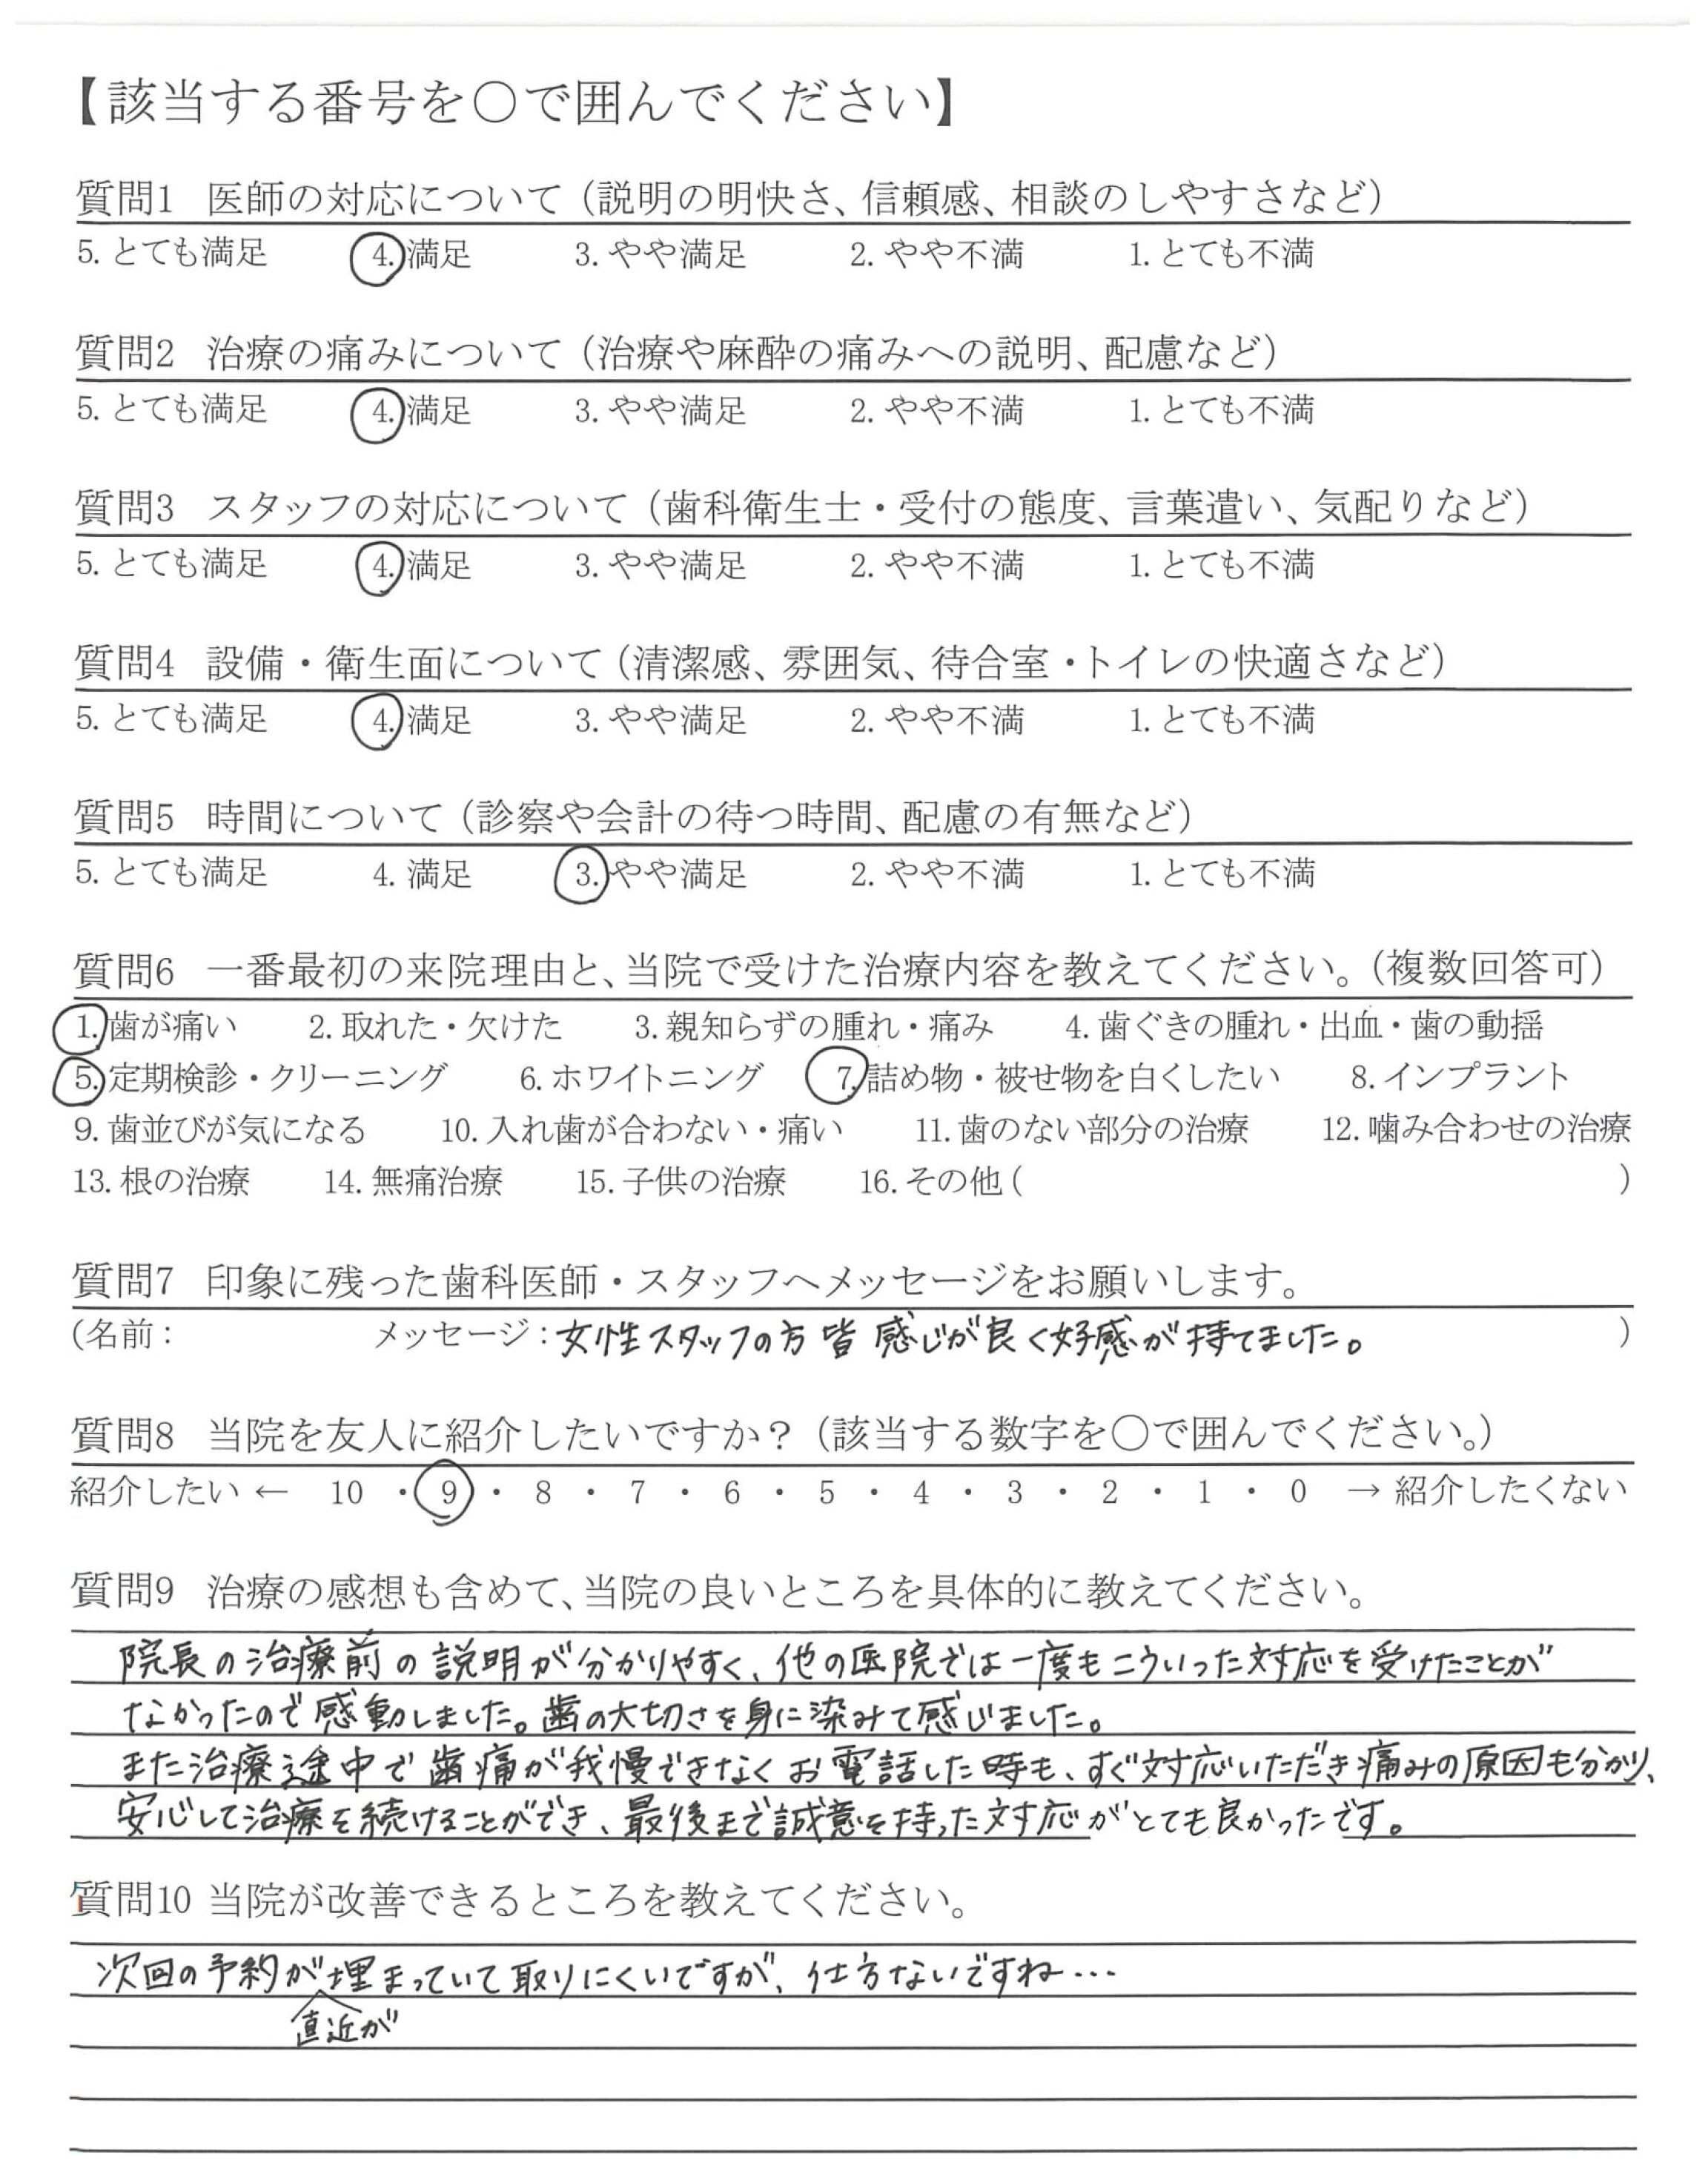 【該当する番号を〇で囲んでください】
質問1 医師の対応について（説明の明快さ、信頼感、相談のしやすさなど）
5. とても満足 4. 満足 3. やや満足 2. やや不満 1. とても不満
質問2 治療の痛みについて（治療や麻酔の痛みへの説明、配慮など）
5. とても満足 4. 満足 3. やや満足 2. やや不満 1. とても不満
質問3 スタッフの対応について（歯科衛生士・受付の態度、言葉遣い、気配りなど）
5. とても満足 4. 満足 3. やや満足 2. やや不満 1. とても不満
質問4 設備・衛生面について（清潔感、雰囲気、待合室・トイレの快適さなど）
5. とても満足 4. 満足 3. やや満足 2. やや不満 1. とても不満
質問5 時間について（診察や会計の待つ時間、配慮の有無など）
5. とても満足 4. 満足 3. やや満足 2. やや不満 1. とても不満
質問6 一番最初の来院理由と、当院で受けた治療内容を教えてください。（複数回答可）
1. 歯が痛い 2. 取れた・欠けた 3. 親知らずの腫れ・痛み 4. 歯ぐきの腫れ・出血・歯の動揺
5. 定期検診・クリーニング 6. ホワイトニング 7. 詰め物・被せ物を白くしたい 8. インプラント
9. 歯並びが気になる 10. 入れ歯が合わない・痛い 11. 歯のない部分の治療 12. 噛み合わせの治療
13. 根の治療 14. 無痛治療 15. 子供の治療 16. その他（ ）
質問7 印象に残った歯科医師・スタッフへメッセージをお願いします。
（名前： メッセージ：女性スタッフの方皆感じが良く好感が持てました。）
質問8 当院を友人に紹介したいですか？（該当する数字を〇で囲んでください。）
紹介したい ← 10 ・ 9 ・ 8 ・ 7 ・ 6 ・ 5 ・ 4 ・ 3 ・ 2 ・ 1 ・ 0 → 紹介したくない
質問9 治療の感想も含めて、当院の良いところを具体的に教えてください。
院長の治療前の説明が分かりやすく、他の医院では一度もこういった対応を受けたことが
なかったので感動しました。歯の大切さを身に染みて感じました。
また治療途中で歯痛が我慢できなくお電話した時も、すぐ対応いただき痛みの原因も分かり、
安心して治療を続けることができ、最後まで誠意を持った対応がとても良かったです。
質問10 当院が改善できるところを教えてください。
次回の予約が埋まっていて取りにくいですが、仕方ないですね…
直近が